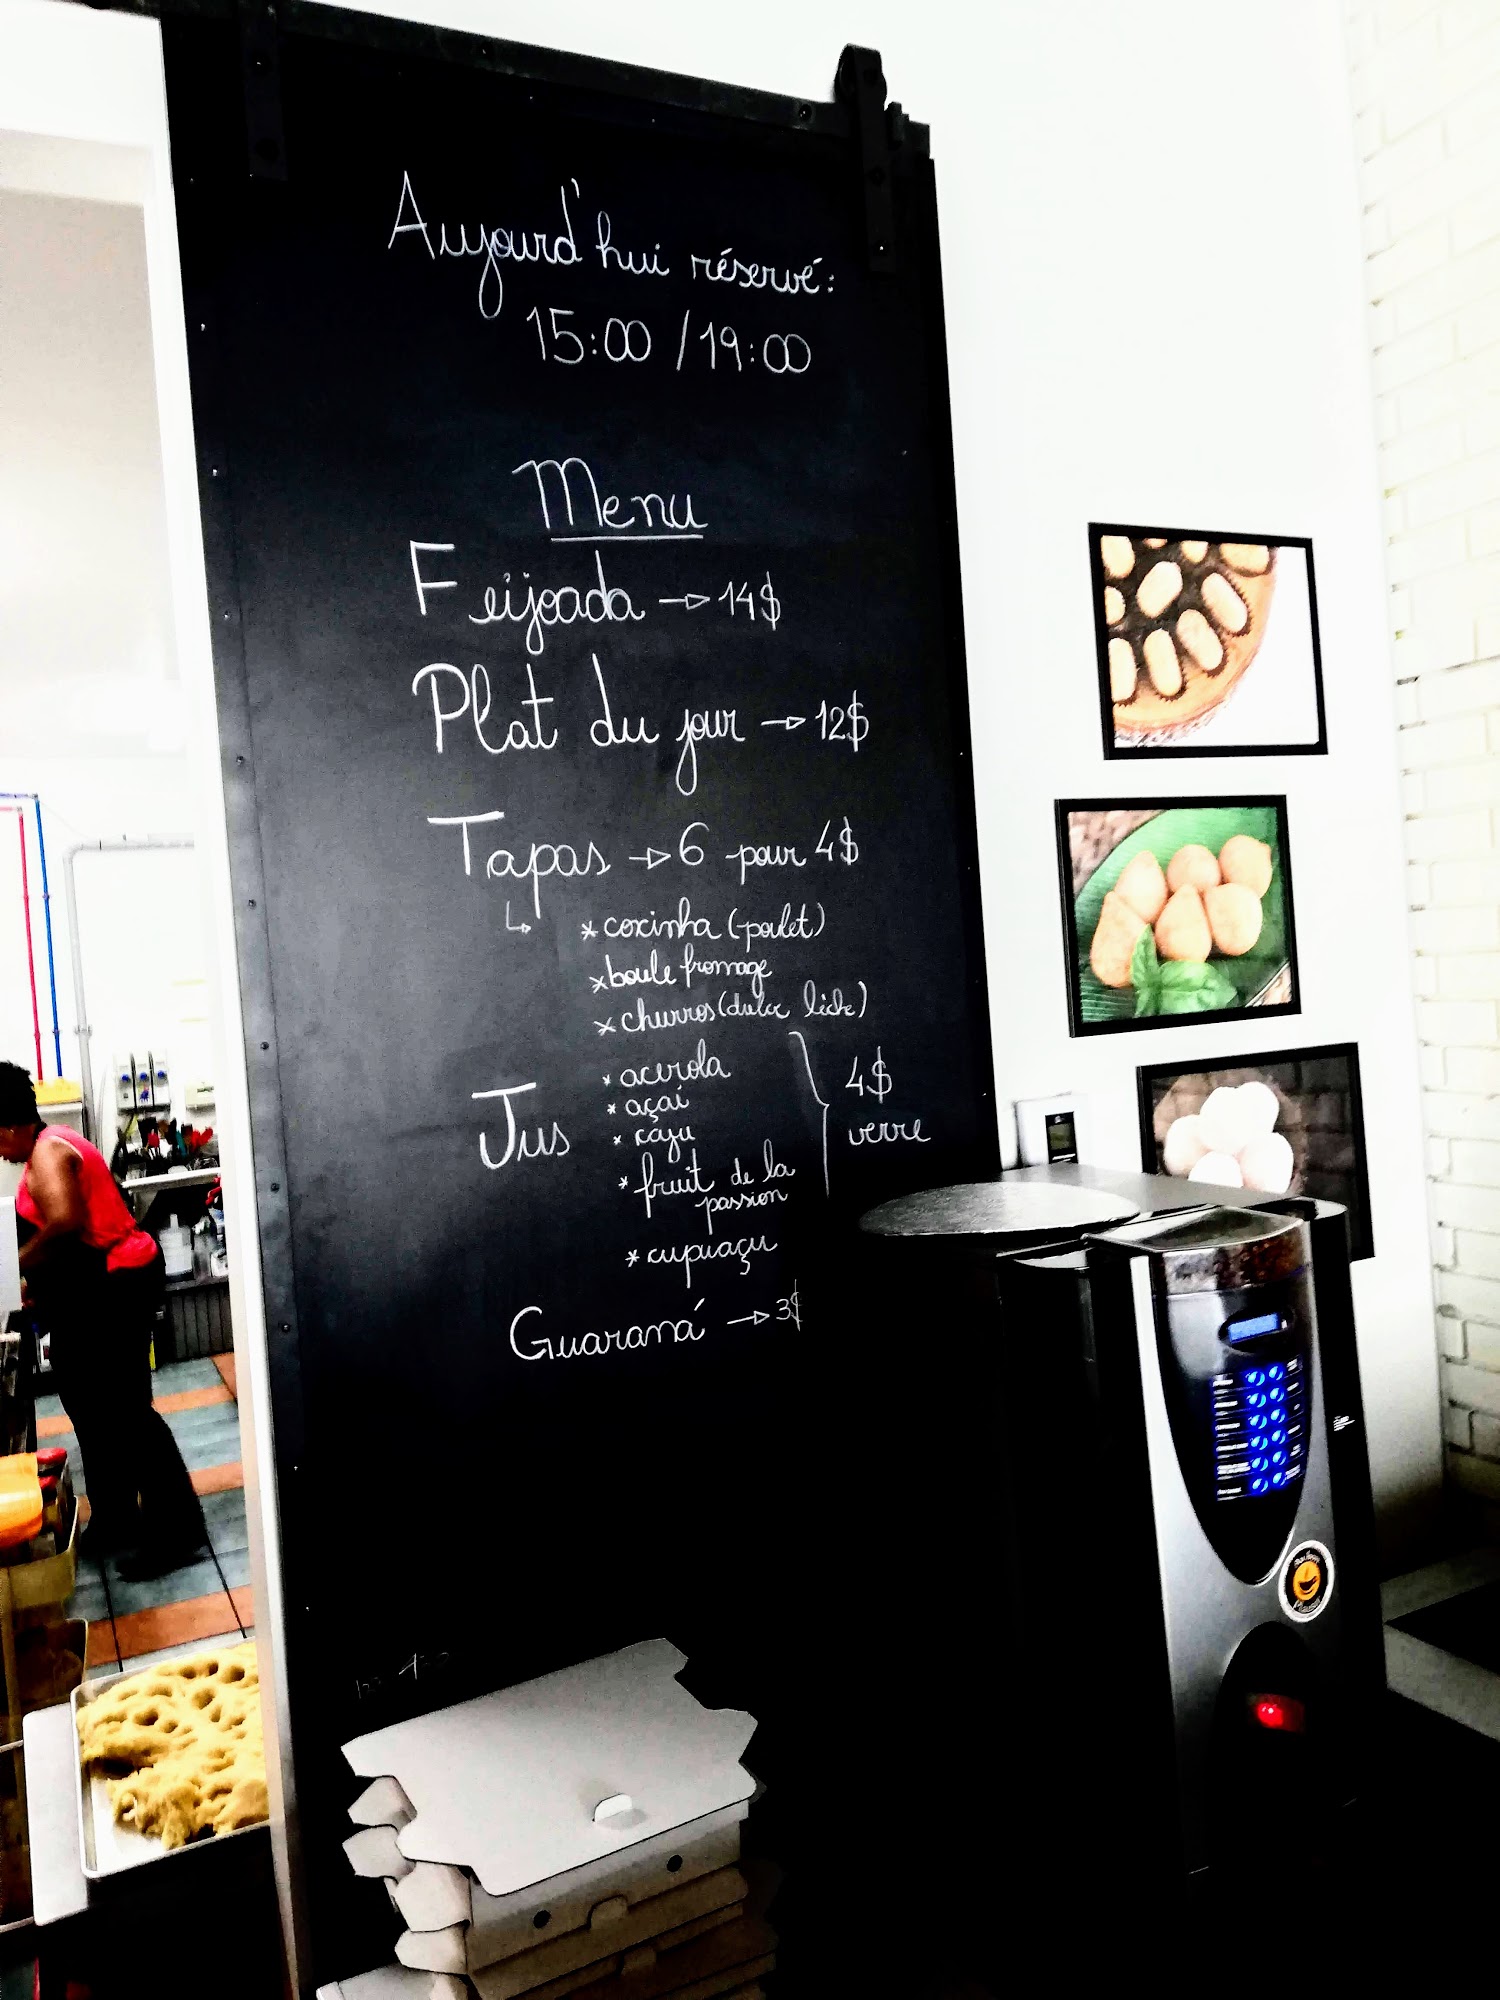 Aujourd'hui réservé:
15:00 / 19:00
Menu
Feijoada → 14$
Plat du jour → 12$
Tapas → 6 pour 4$
* coxinha (poulet)
* boule fromage
* churros (dulce
Jus
* acerola
* açaí
* caju
* fruit de la
passion
* cupuaçu
4$
verre
Guaraná → 3$